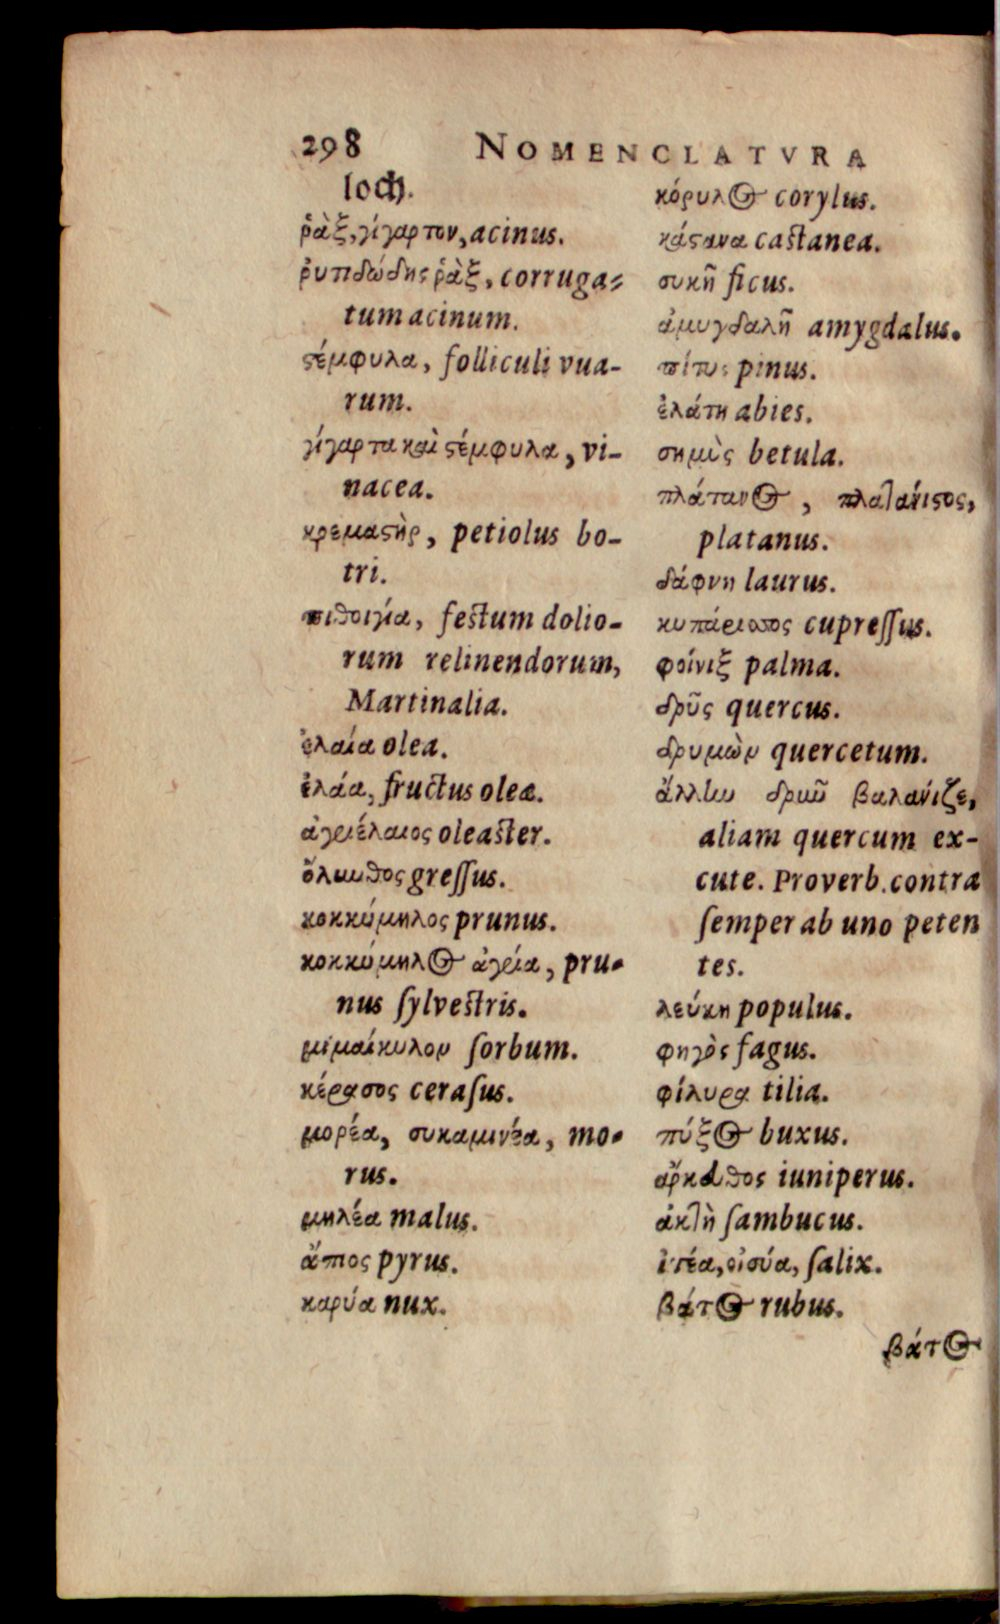 298 NOMENCLATVRA
loch.
ῥὰξ, γίγαρτον, acinus.
ῥυπδώδης ῥὰξ, corruga-
tum acinum.
ϛέμφυλα, folliculi vua-
rum.
γίγαρτα καὶ ϛέμφυλα, vi-
nacea.
κρεμαϛὴρ, petiolus bo-
tri.
πιθοιγία, festum dolio-
rum relinendorum,
Martinalia.
ἐλαία olea.
ἐλάα, fructus oleæ.
ἀγριέλαιος oleaster.
ὄλυνθος gressus.
κοκκύμηλος prunus.
κοκκύμηλος ἀγρία, pru-
nus sylvestris.
μιμαίκυλον sorbum.
κέρασος cerasus.
μορέα, συκαμινέα, mo-
rus.
μηλέα malus.
ἄπιος pyrus.
καρύα nux.
κόρυλος corylus.
κάϛανα castanea.
συκῆ ficus.
ἀμυγδαλῆ amygdalus.
πίτυς pinus.
ἐλάτη abies.
σημὺς betula.
πλάτανος, πλατάνιϛος,
platanus.
δάφνη laurus.
κυπάρισσος cupressus.
φοίνιξ palma.
δρῦς quercus.
δρυμὼν quercetum.
ἄλλην δρῦν βαλάνιζε,
aliam quercum ex-
cute. Proverb. contra
semper ab uno peten
tes.
λεύκη populus.
φηγὸς fagus.
φίλυρα tilia.
πύξος buxus.
ἄρκευθος iuniperus.
ἀκτὴ sambucus.
ἰτέα, οἰσύα, salix.
βάτος rubus.
βάτος